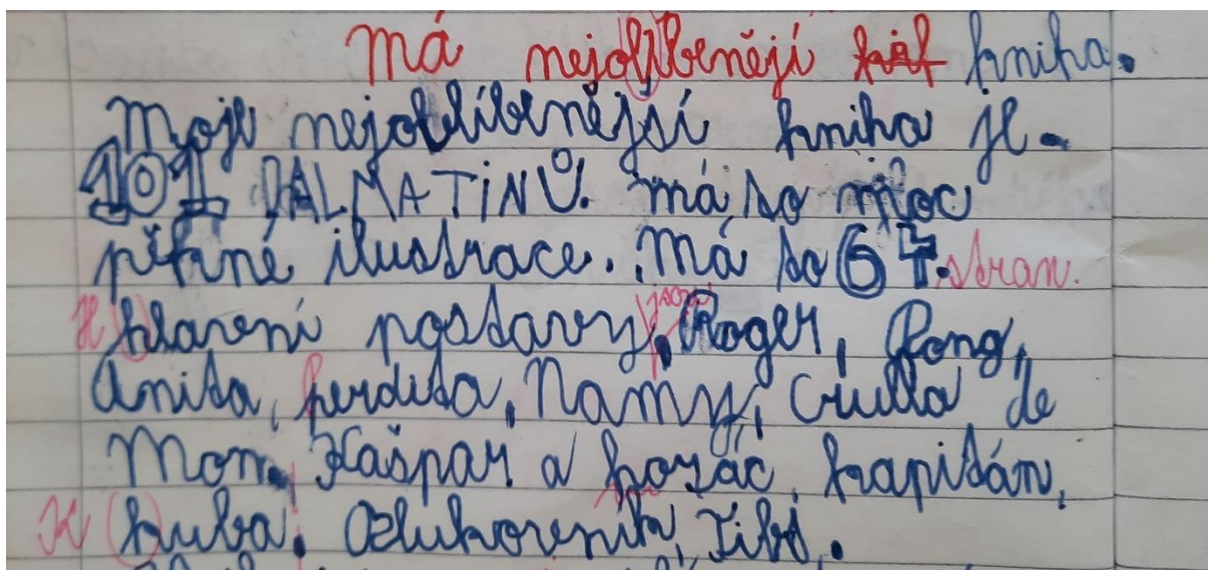 Má nejoblibenějí kniha.
Moje nejoblíbenějsí kniha je
101 DALMATINŮ. má to moc
pěkné ilustrace. Má to 64 stran.
H hlavní postavy, jsou Roger, Pong,
Anita, perdita, Namy, Crulla de
Mon, Kašpar a horác, kapitán,
K kuba.